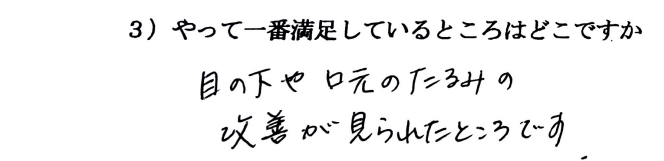 3）やって一番満足しているところはどこですか
目の下や口元のたるみの
改善が見られたところです